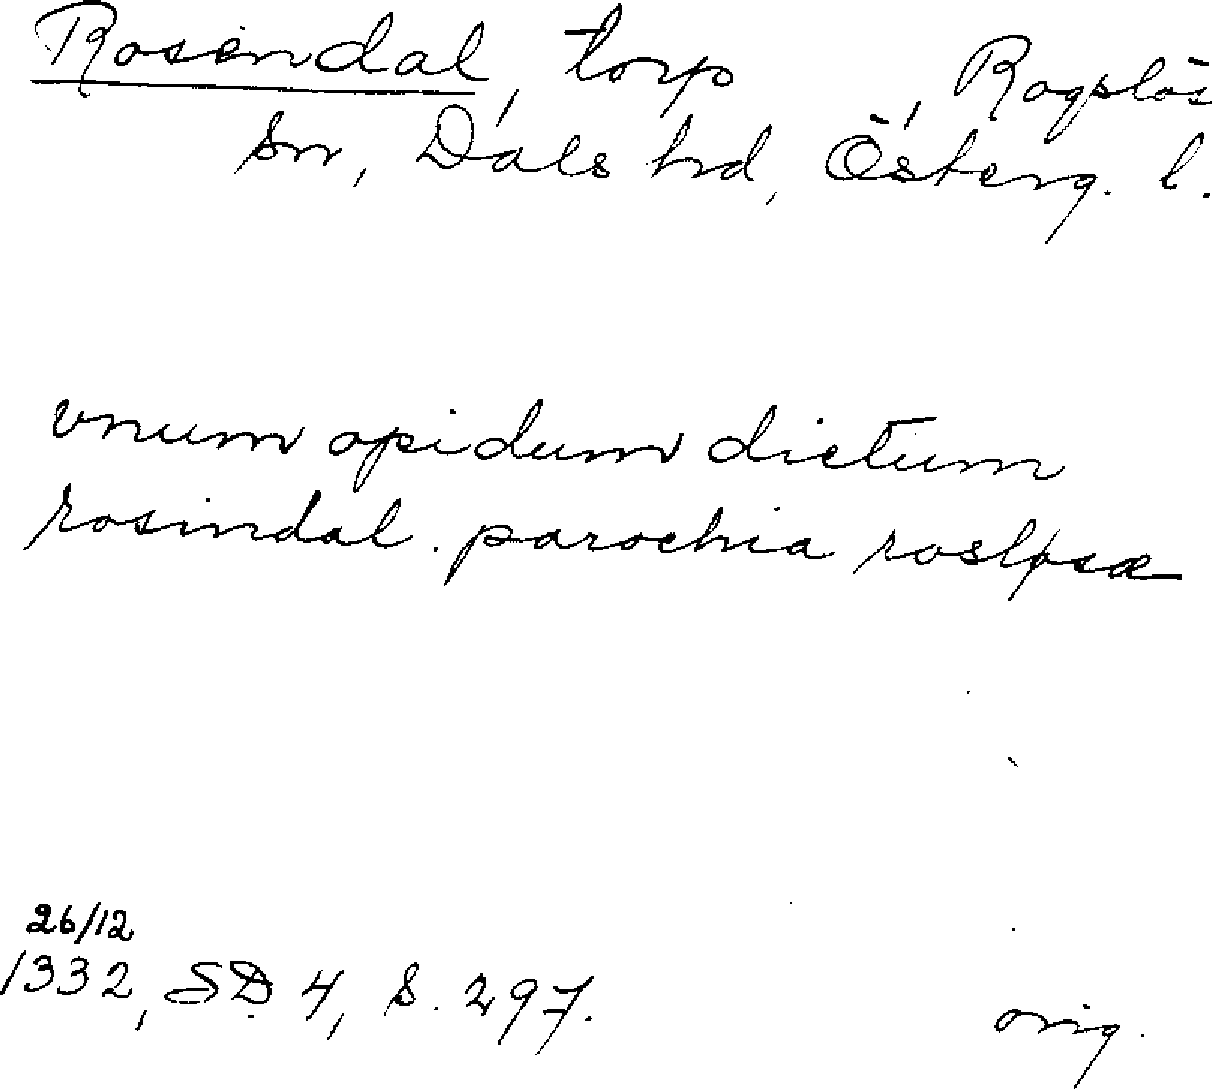 Rosendal, torp, Rogslös
sn, Dals hd, Österg. l.
vnum opidum dictum
rosindal. parochia rosløsæ
26/12
1332, SD 4, s. 297.
orig.